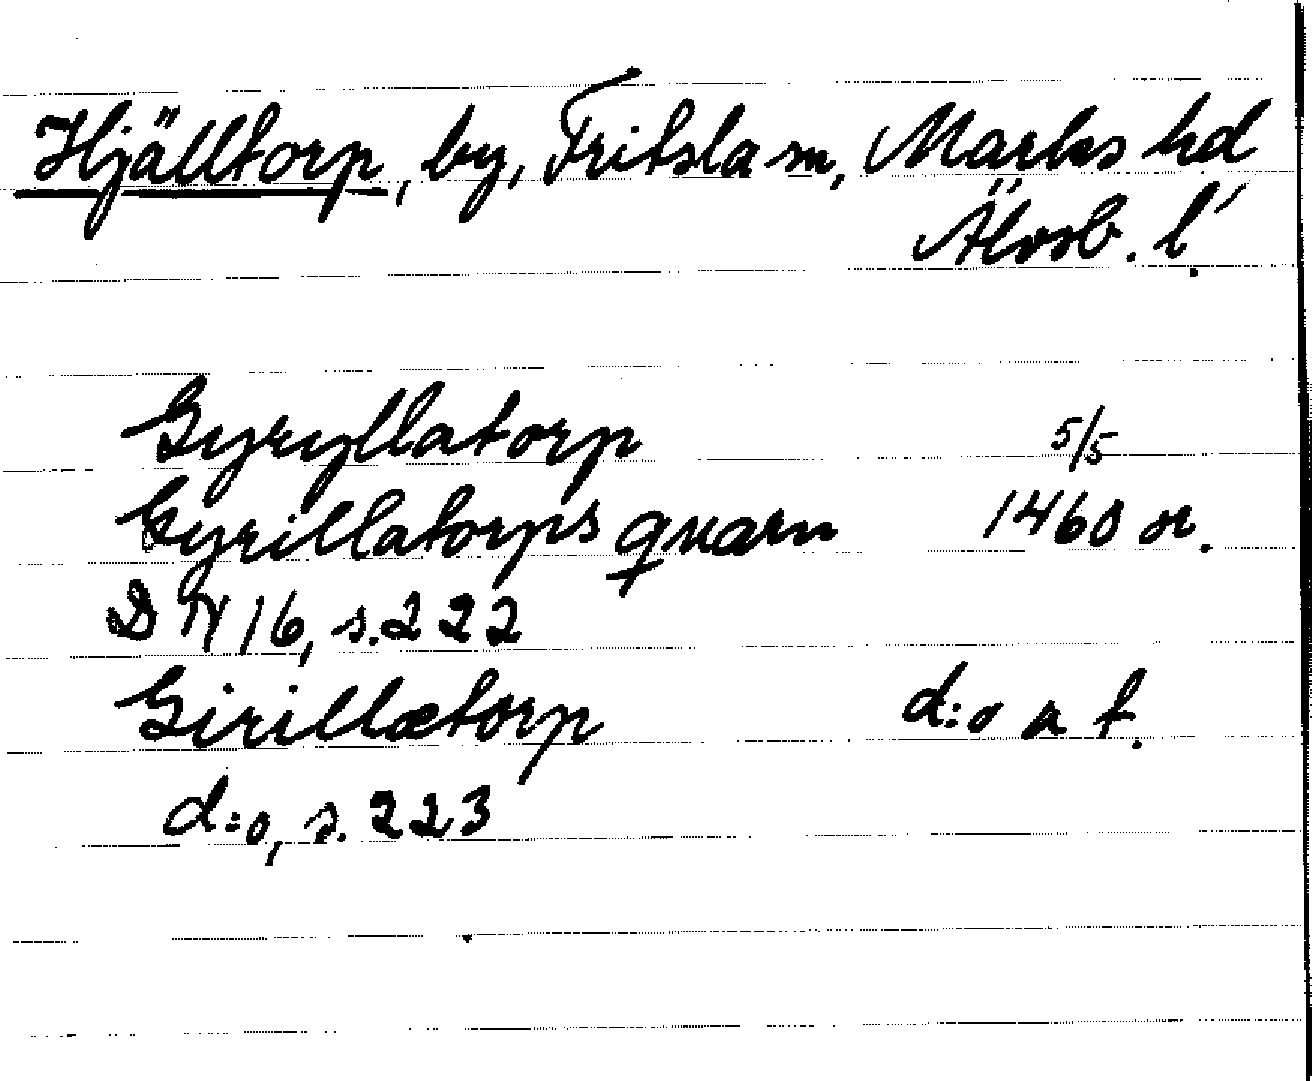 Hjälltorp, by, Fritsla sn, Marks hd
Älvsb. l.
Gyryllatorp 5/5
Gyrillatorps qvarn 1460 or.
DN 16, s. 222
Girillætorp d:o a f.
d:o, s. 223